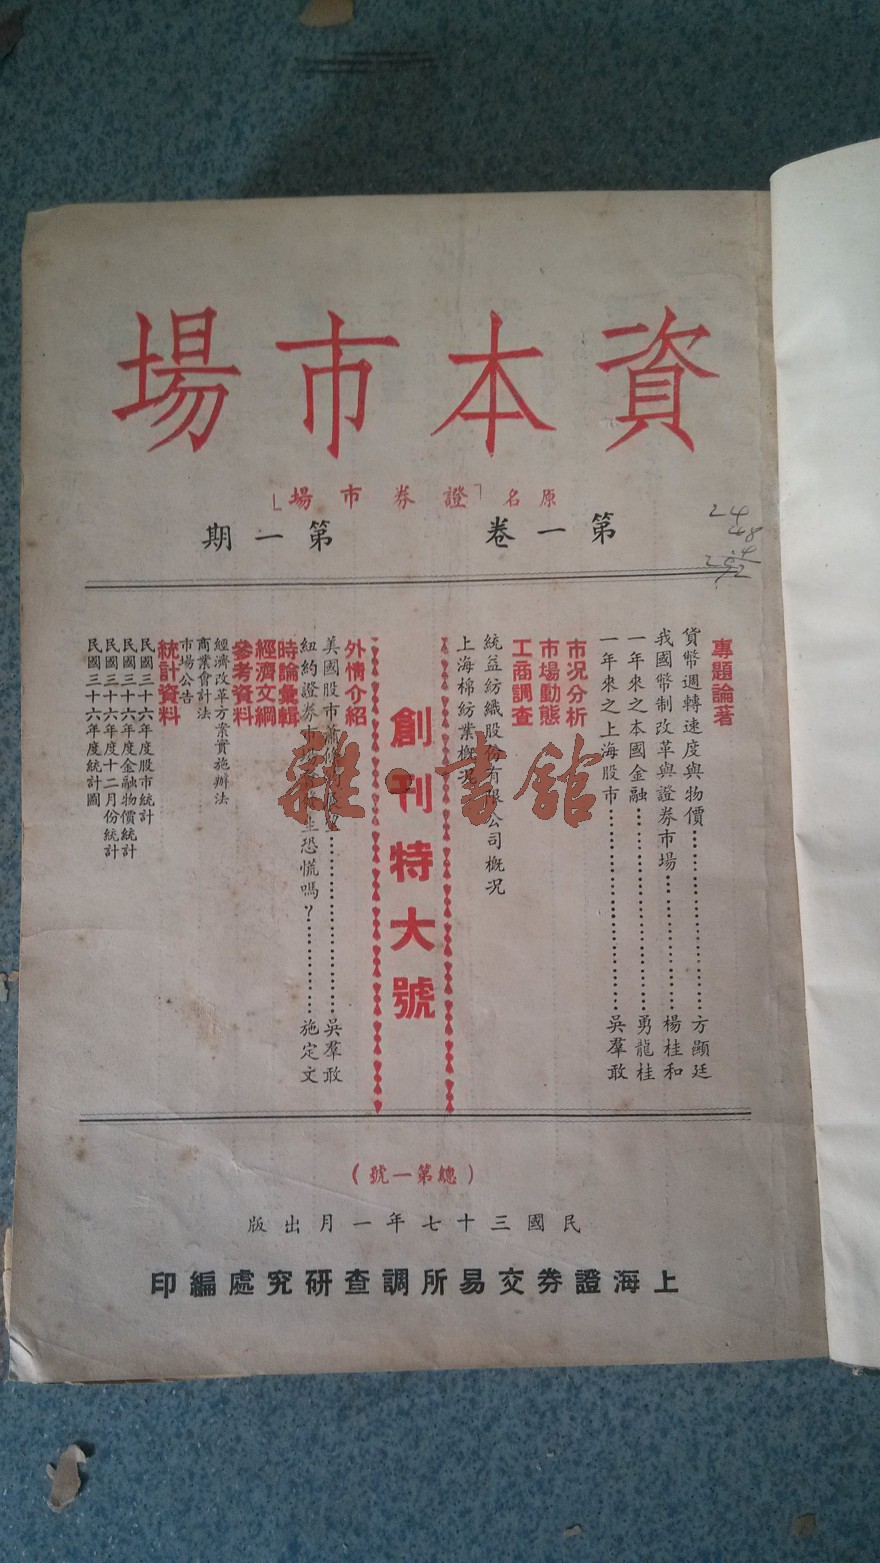 資本市場
原名「證券市場」
第一卷 第一期
專題論著
貨幣週轉速度與物價……方顯廷
我國幣制改革與證券市場……楊桂和
一年來之本國金融……勇龍桂
一年來之上海股市……吳羣敢
市况分析
市場動態
工商調查
統益紡織股份有限公司概况
上海棉紡業概况
創刊特大號
外情介紹
美國股市蕭條……吳羣敢
紐約證券市 生恐慌嗎？……施定文
時論彙輯
經濟文綱
參考資料
經濟改革方案實施辦法
商業會計法
市場公告
統計資料
民國三十六年度股市統計
民國三十六年度金融物價統計
民國三十六年度十二月份統計
民國三十六年度統計圖
（總第一號）
民國三十七年一月出版
上海證券交易所調查研究處編印
雜·書館
24
48